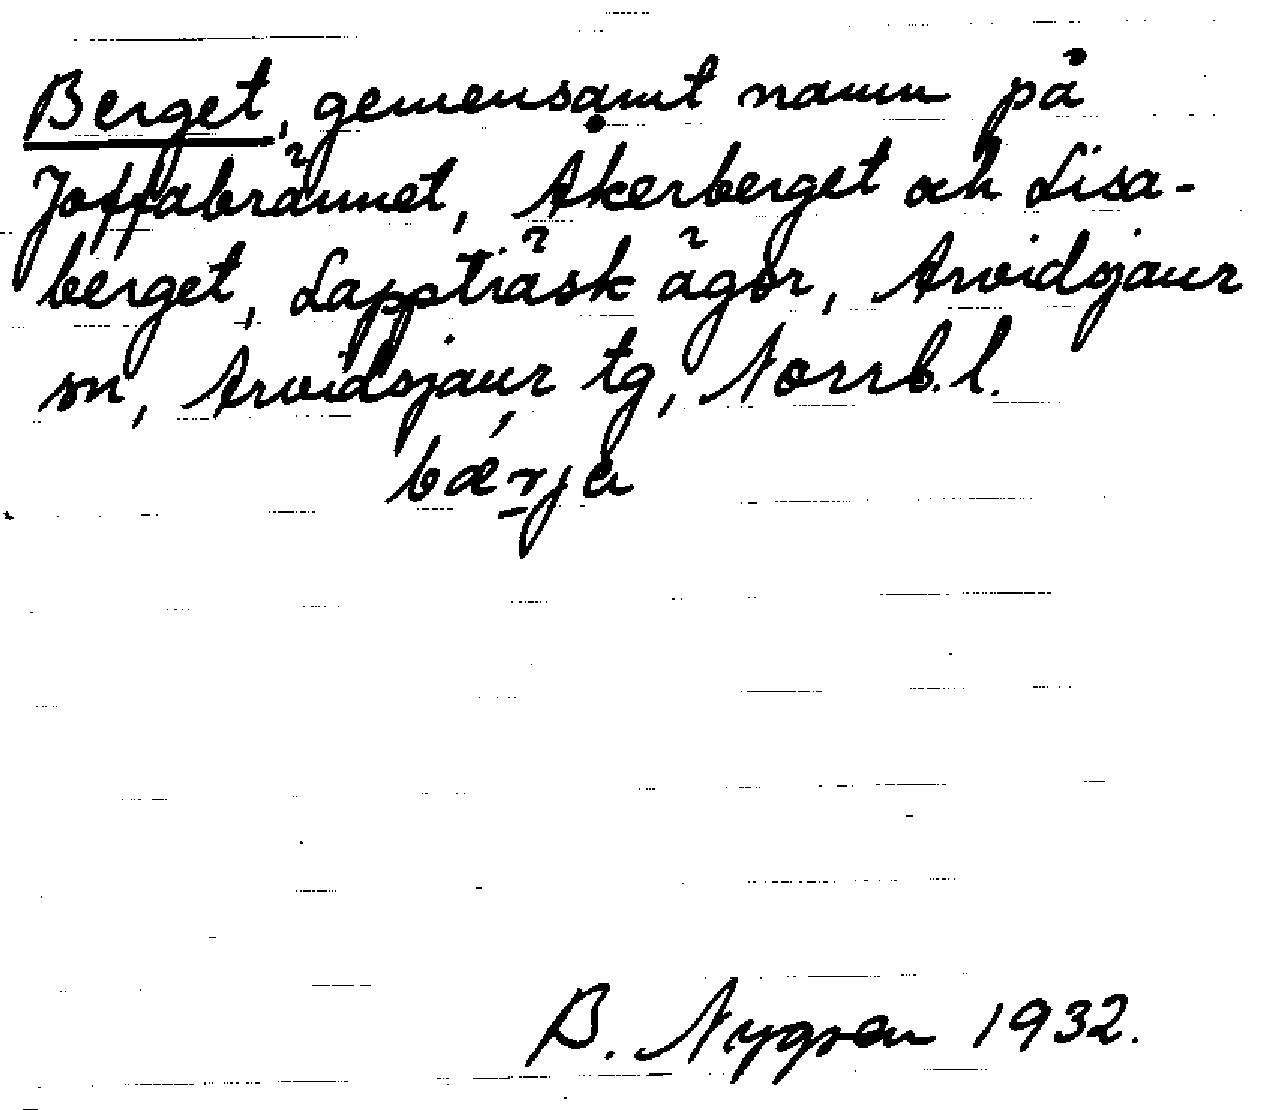 Berget, gemensamt namn på
Joffabrännet, Åkerberget och Lisa-
berget, Lappträsk ägor, Arvidsjaur
sn, Arvidsjaur tg, Norrb. l.
bǽr̲ja
B. Nygren 1932.